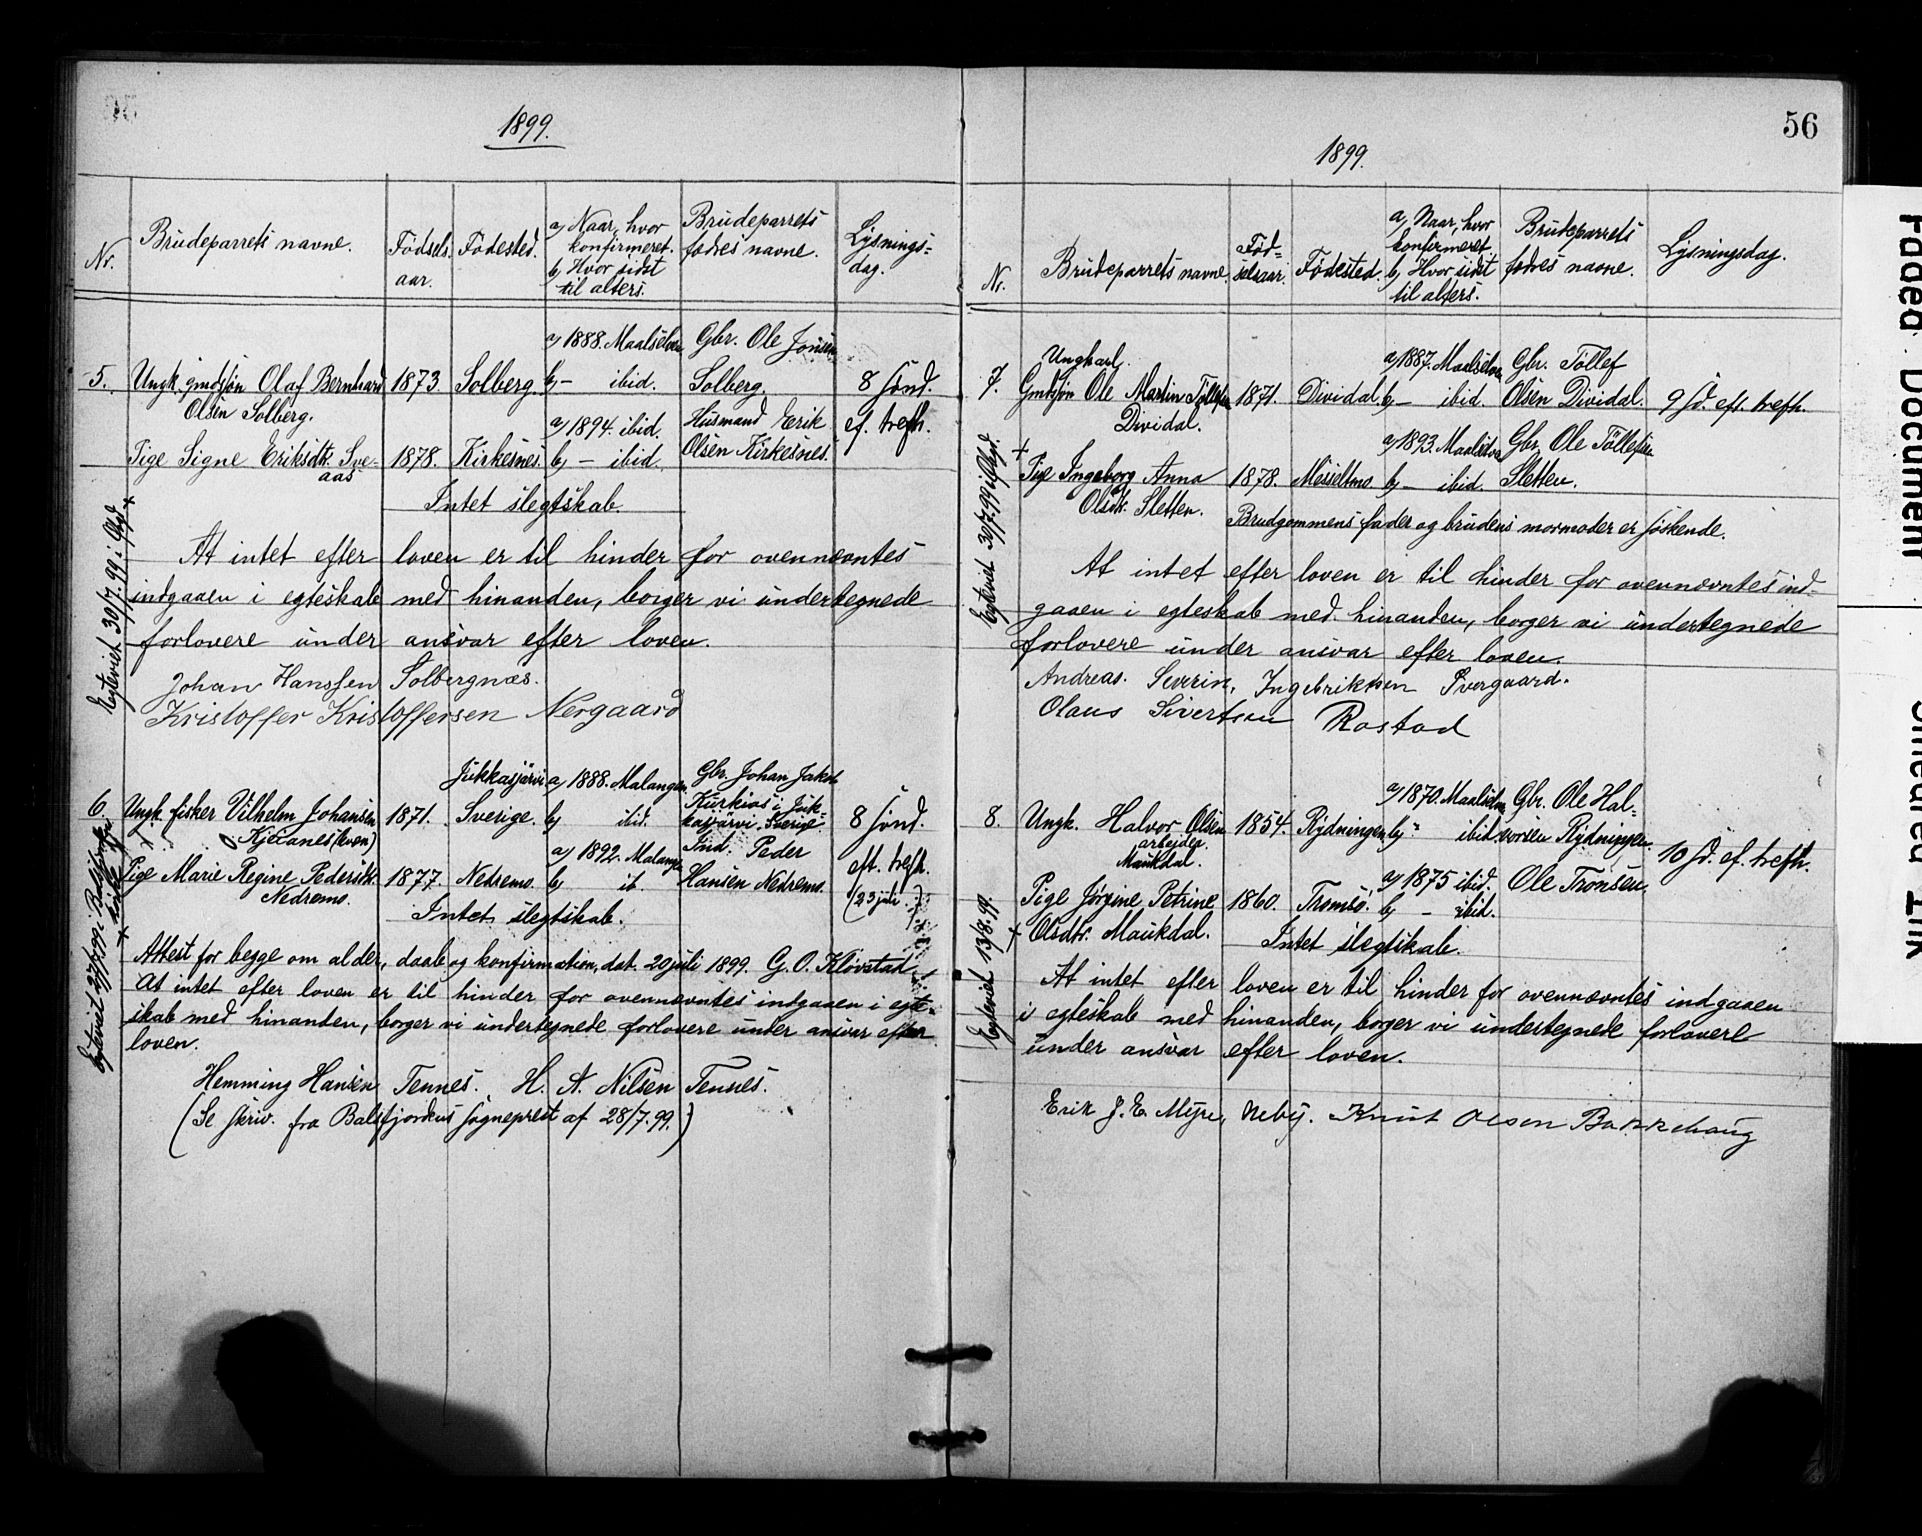 1899.
Nr. Brudeparrets navne. Fødsels- aar. Fødested. a) Naar, hvor konfirmeret. b) Hvor sidst til alters. Brudeparrets fædres navne. Lysnings= dag.
a) 1888. Maalselven Gbr. Ole Jonsen
5. Ungk. gmdsøn Olaf Bernhard 1873. Solberg. b) – ibid. Solberg. 8 sönd.
Olsen Solberg. a) 1894. ibid. Husmand Erik ef. trefh.
Pige Signe Eriksdtr. Sve- 1878. Kirkesnes. b) – ibid. Olsen Kirkesnes.
aas
Intet slegtskab.
At intet efter loven er til hinder for ovennævntes
indgaaen i egteskab med hinanden, borger vi undertegnede
forlovere under ansvar efter loven.
Johan Hanssen Solbergnæs.
Kristoffer Kristoffersen Nergaard
Egteviet 30/7.99 i Øfjd. +
Jukkasjärvi a) 1888. Malangen Gbr. Johan Jakob
6. Ungk. fisker Vilhelm Johansen 1871. Sverige. b) ibid. Kurkios i Juk-
kasjärvi. Sverige 8 sönd.
(kven) a) 1892. Malangen Ind. Peder eft. trefh.
Pige Marie Regine Pedersdtr. 1877. Nedremo. b) ib. Hansen Nedremo. (23 juli.)
Nedremo.
Intet slegtskab.
Attest for begge om alder, daab og konfirmation, dat. 20 juli 1899. G. O. Kløvstad
At intet efter loven er til hinder for ovennævntes indgaaen i egte=
skab med hinanden, borger vi undertegnede forlovere under ansvar efter
loven.
Hemming Hansen Tennes. H. A. Nilsen Tennes.
(Se skriv. fra Balsfjordens sogneprest af 28/7.99.)
Egteviet 27/7.99 i Balsfjordens kirke
56
1899.
Nr. Brudeparrets navne. Fød= selsaar. Fødested. a) Naar, hvor konfirmeret b) Hvor sidst til alters. Brudeparrets fædres navne. Lysningsdag.
Ungkarl a) 1887. Maalselven Gbr. Tollef
7. Gmdsøn Ole Martin Tollefsen 1871. Dividal. b) – ibid. Olsen Dividal. 9 sd. eft. trefh.
Dividal. a) 1893. Maalselven Gbr. Ole Tollefsen
Pige Ingeborg Anna 1878. Moseltmo b) – ibid. Sletten.
Olsdtr. Sletten. Brudgommens fader og brudens mormoder er söskende.
At intet efter loven er til hinder for ovennævntes ind-
gaaen i egteskab med hinanden, borger vi undertegnede
forlovere under ansvar efter loven.
Andreas. Severin. Ingebriktsen Svergaard.
Olaus Sivertsen Rostad
Egteviet 30/7.99 i Øfjd. +
a) 1870. Maalselven Gbr. Ole Hal=
8. Ungk. Halvor Olsen 1854. Rydningen b) " ibid. vorsen Rydningen.
arbejder
Maukdal. a) 1875 ibid. Ole Tronsen 10 sd. ef. trefh.
Pige Jørgine Petrine 1860. Tromsö. b) – ibid.
+ Olsdtr. Maukdal. Intet slegtskab.
At intet efter loven er til hinder for ovennævntes indgaaen
i egteskab med hinanden, borger vi undertegnede forlovere
under ansvar efter loven.
Erik J. E. Myre, Neby. Knut Olsen Bakkehaug
Egteviet 13/8.99.
Faded Document
Smeared Ink